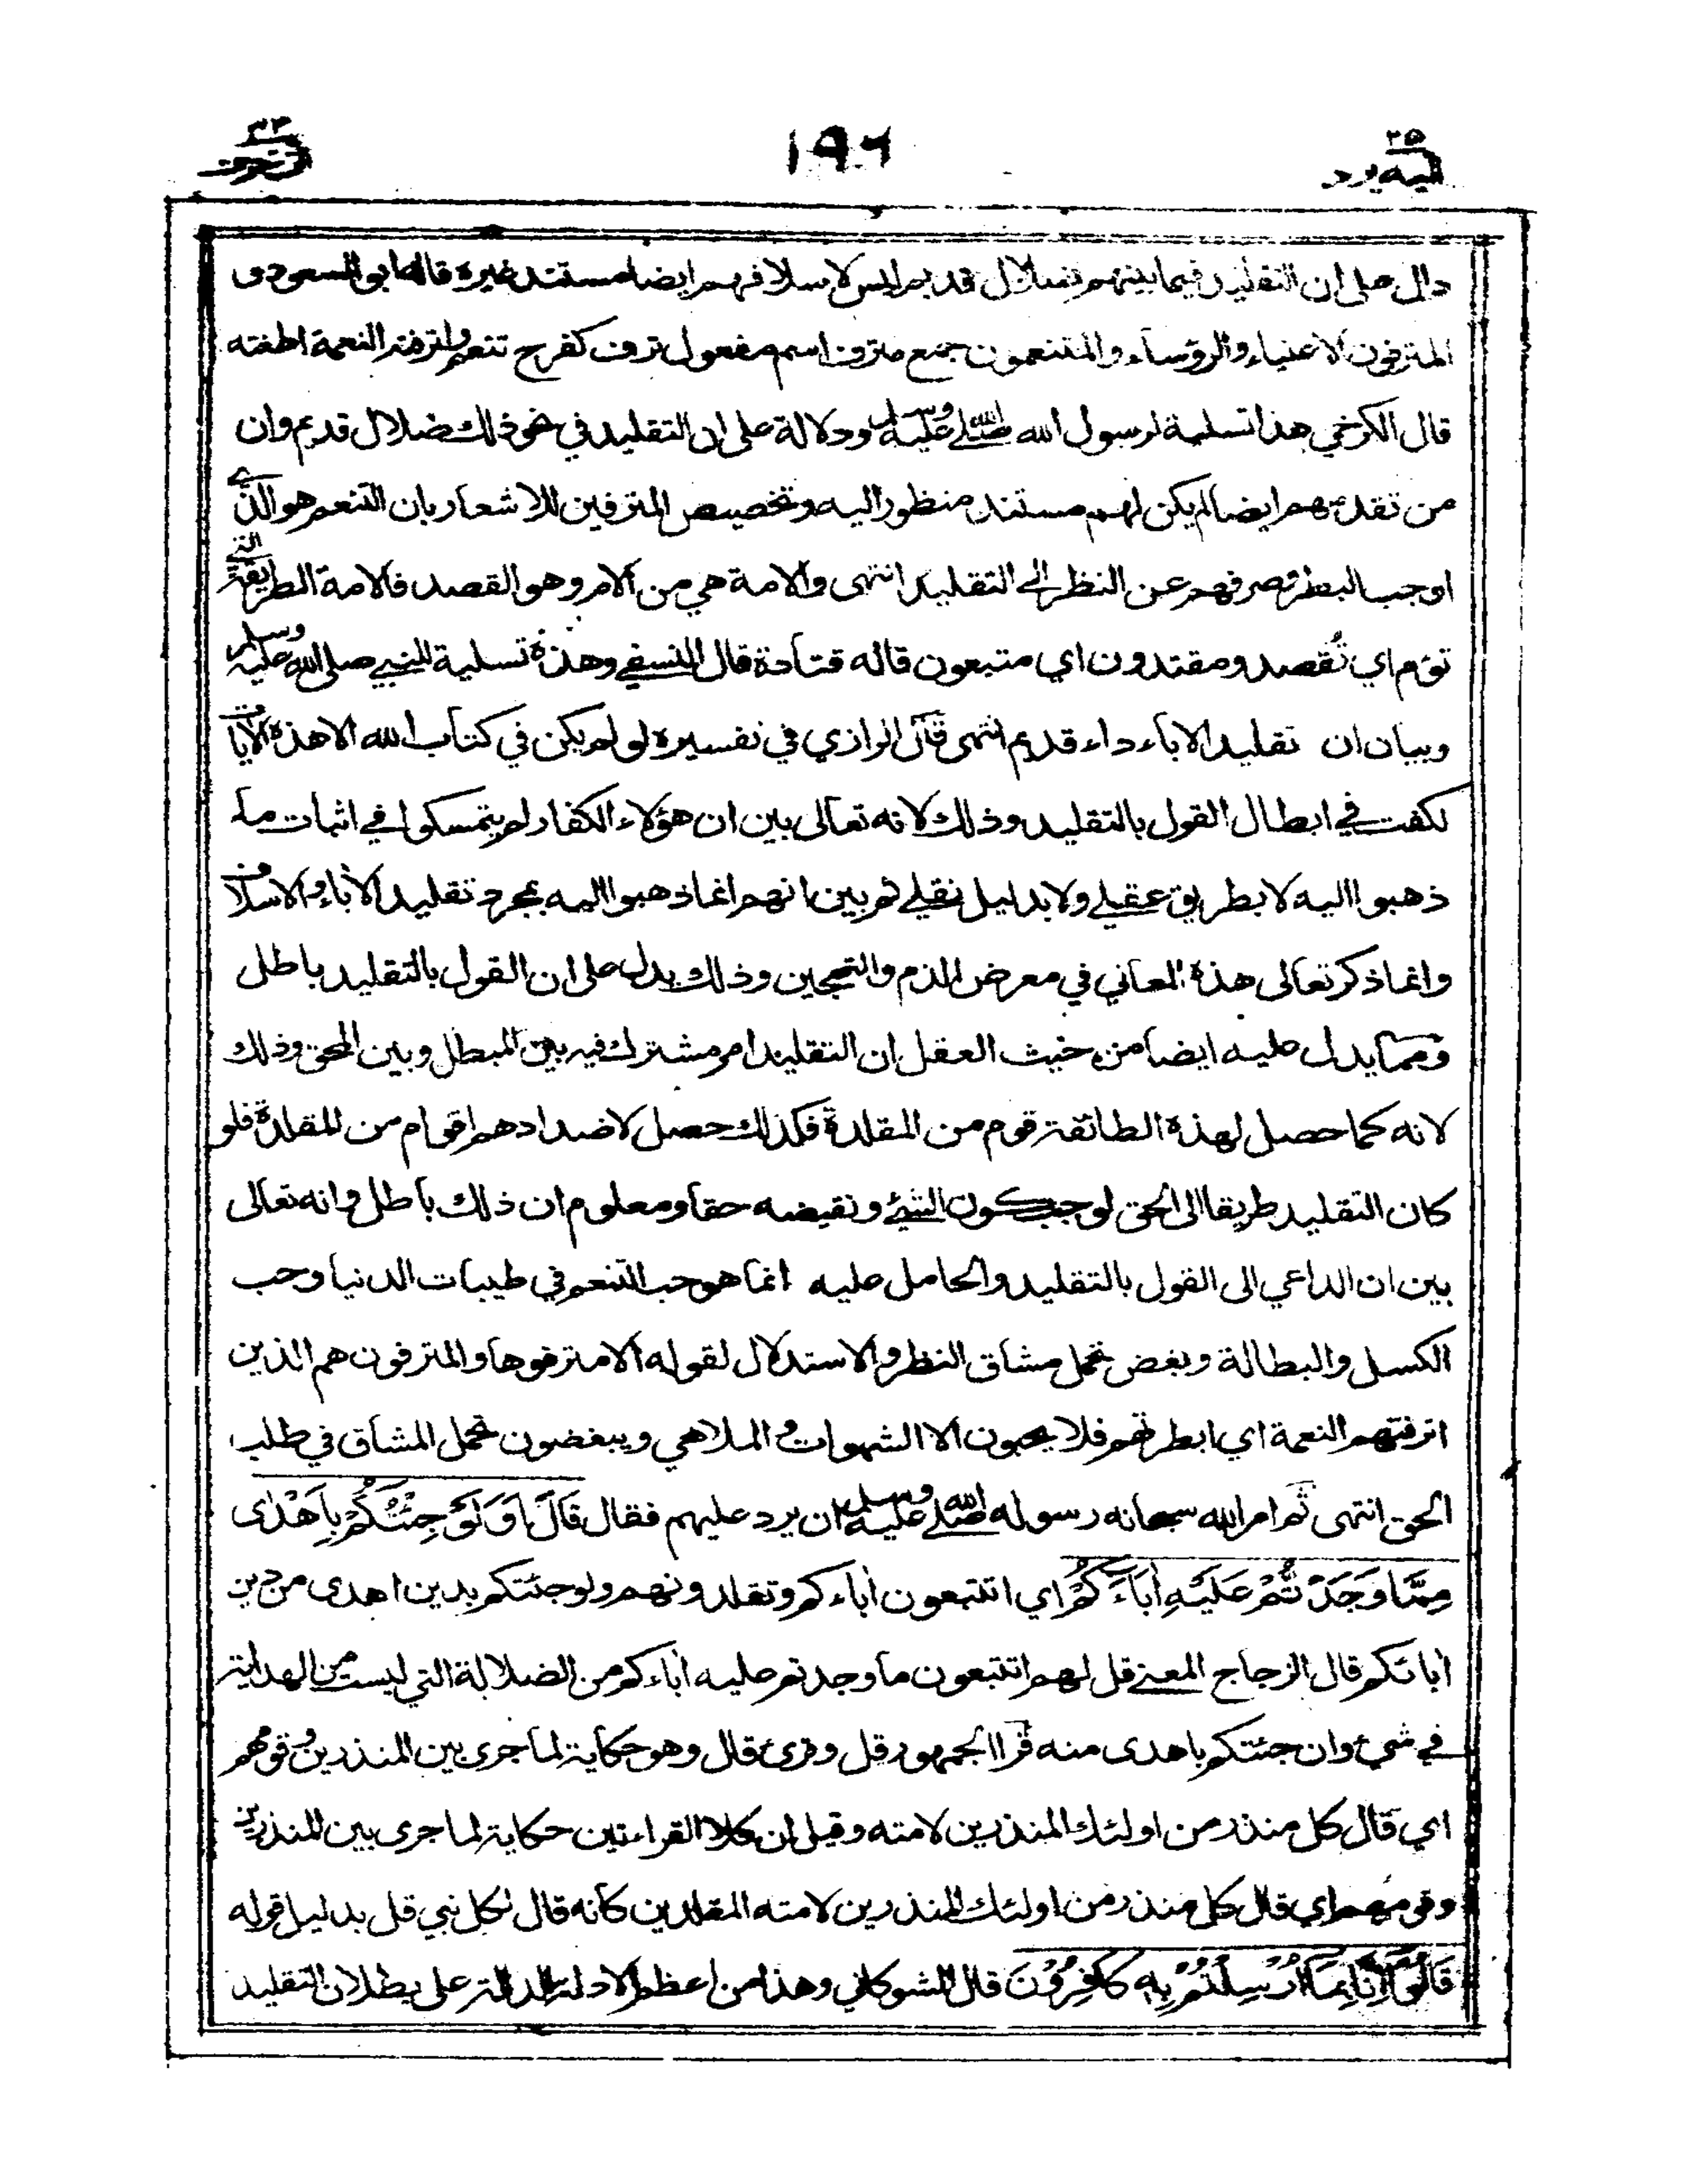 ٢٥
اليه يرد
١٩٦
٤٣
زخرف
دال على ان التقليد فيما بينهم ضلال قديم ليس لاسلافهم ايضا مستند غيره قاله ابو السعود
المترفون الاغنياء والرؤساء والمتنعمون جمع مترف اسم مفعول ترف كفرح تنعم واترفته النعمة اطغته
قال الكرخي هذا تسلية لرسول الله صلى الله عليه وسلم ودلالة على ان التقليد في نحو ذلك ضلال قديم وان
من تقدمهم ايضا لم يكن لهم مستند منظور اليه وتخصيص المترفين للاشعار بان التنعم هو الذي
اوجب البطر وصرفهم عن النظر الى التقليد انتهى والامة هي من الام وهو القصد فالامة الطريقة التي
تؤم اي تُقصد ومقتدون اي متبعون قاله قتادة قال النسفي وهذه تسلية للنبي صلى الله عليه وسلم
وبيان ان تقليد الاباء داء قديم انتهى قال الرازي في تفسيره لو لم يكن في كتاب الله الا هذه الايات
لكفت في ابطال القول بالتقليد وذلك لانه تعالى بين ان هؤلاء الكفار لم يتمسكوا في اثبات ما
ذهبوا اليه لا بطريق عقلي ولا بدليل نقلي ثم بين انهم انما ذهبوا اليه بمجرد تقليد الأباء والاسلاف
وانما ذكر تعالى هذه المعاني في معرض الذم والتهجين وذلك يدل على ان القول بالتقليد باطل
ومما يدل عليه ايضا من حيث العقل ان التقليد امر مشترك فيه بين المبطل وبين المحق وذلك
لانه كما حصل لهذه الطائفة قوم من المقلدة فكذلك حصل لاضدادهم اقوام من المقلدة فلو
كان التقليد طريقا الى الحق لوجب كون الشيء ونقيضه حقا ومعلوم ان ذلك باطل وانه تعالى
بين ان الداعي الى القول بالتقليد والحامل عليه انما هو حب التنعم في طيبات الدنيا وحب
الكسل والبطالة وبغض تحمل مشاق النظر والاستدلال لقوله الا مترفوها والمترفون هم الذين
اترفتهم النعمة اي ابطرتهم فلا يحبون الا الشهوات والملاهي ويبغضون تحمل المشاق في طلب
الحق انتهى ثم امر الله سبحانه رسوله صلى الله عليه وسلم ان يرد عليهم فقال قَالَ اَوَلَوْ جِئْتُكُمْ بِاَهْدٰى
مِمَّا وَجَدْتُّمْ عَلَيْهِ اٰبَاءَكُمْ اي اتتبعون اٰباءكم وتقلدونهم ولو جئتكم بدين اهدى من دين
اٰبائكم قال الزجاج المعنى قل لهم اتتبعون ما وجدتم عليه اٰباءكم من الضلالة التي ليست من الهداية
في شيء وان جئتكم باهدى منه قرأ الجمهور قل وقرئ قال وهو حكاية لما جرى بين المنذرين وقومهم
اي قال كل منذر من اولئك المنذرين لامته وقيل ان كلا القراءتين حكاية لما جرى بين المنذرين
وقومهم اي قال كل منذر من اولئك المنذرين لامته المقلدين كانه قال لكل نبي قل بدليل قوله
قَالُوْا اِنَّا بِمَا اُرْسِلْتُمْ بِهٖ كَافِرُوْنَ قال الشوكاني وهذا من اعظم الادلة الدالة على بطلان التقليد